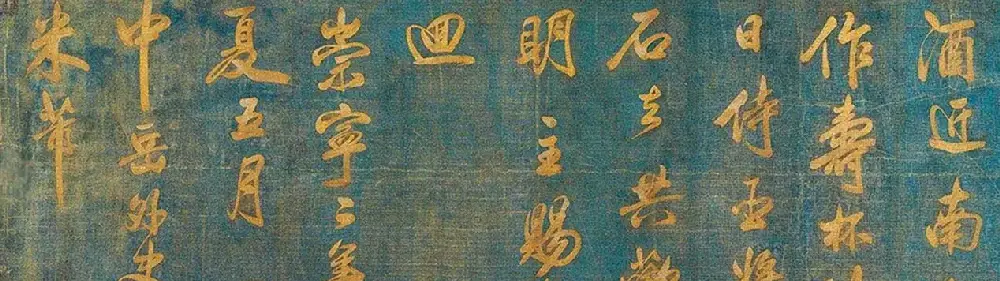 酒近南
作壽杯
日侍臣將
石去共歡
明主賜
迴
崇寧二年
夏五月
中岳外史
米芾